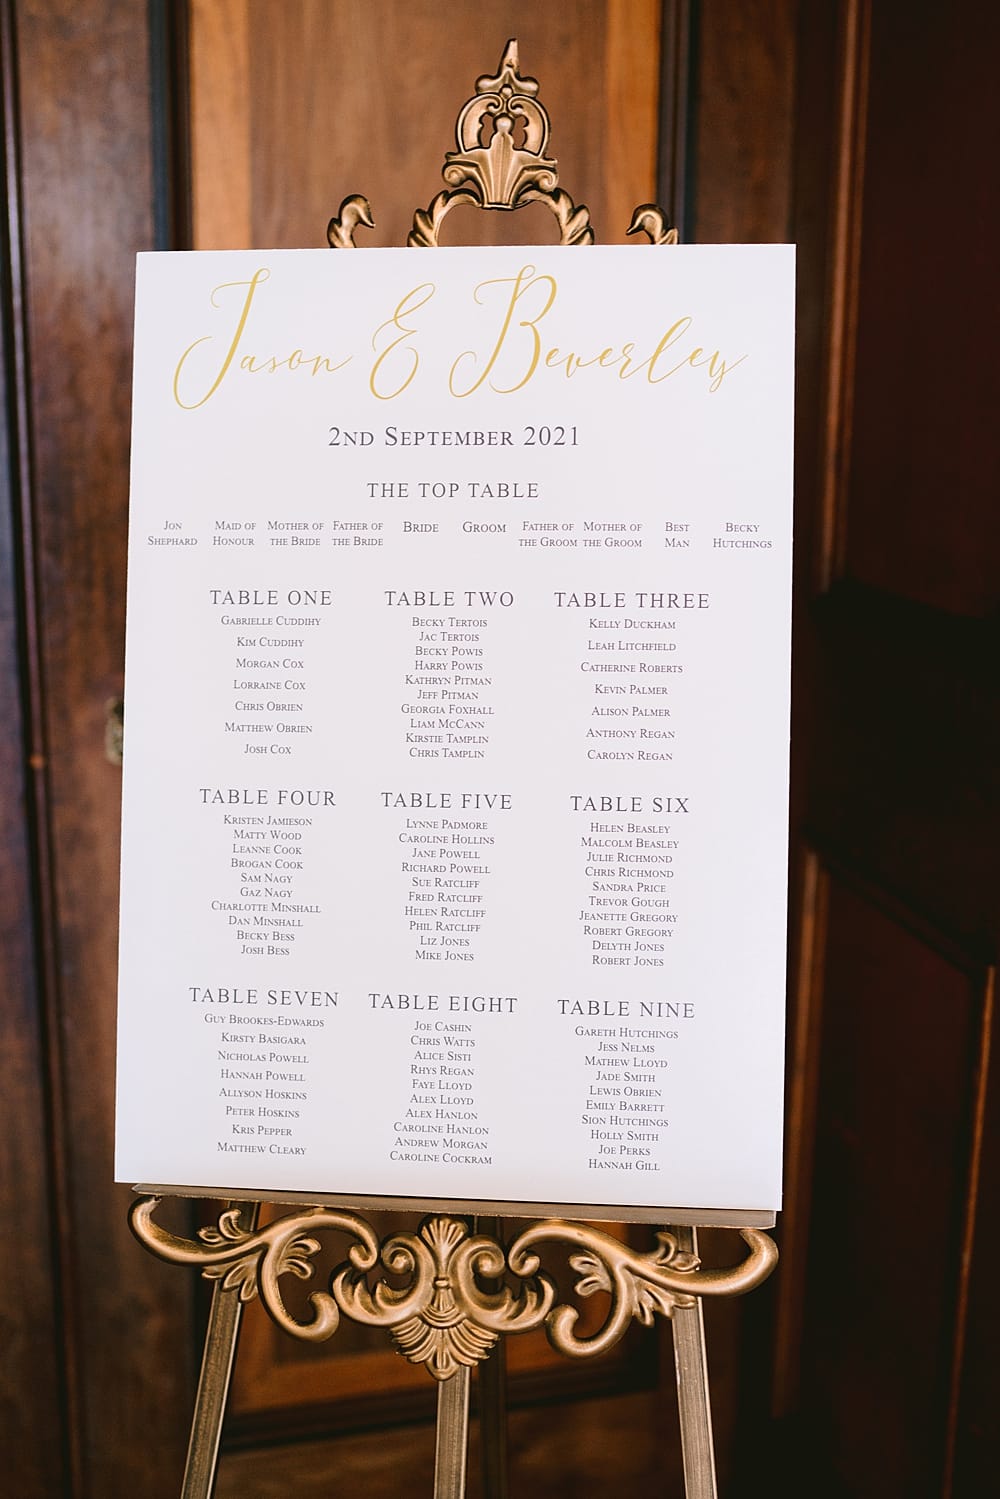 Jason & Beverley
2nd September 2021
THE TOP TABLE
Jon Shephard
Maid of Honour
Mother of the Bride
Father of the Bride
Bride
Groom
Father of the Groom
Mother of the Groom
Best Man
Becky Hutchings
TABLE ONE
Gabrielle Cuddihy
Kim Cuddihy
Morgan Cox
Lorraine Cox
Chris Obrien
Matthew Obrien
Josh Cox
TABLE TWO
Becky Tertois
Jac Tertois
Becky Powis
Harry Powis
Kathryn Pitman
Jeff Pitman
Georgia Foxhall
Liam McCann
Kirstie Tamplin
Chris Tamplin
TABLE THREE
Kelly Duckham
Leah Litchfield
Catherine Roberts
Kevin Palmer
Alison Palmer
Anthony Regan
Carolyn Regan
TABLE FOUR
Kristen Jamieson
Matty Wood
Leanne Cook
Brogan Cook
Sam Nagy
Gaz Nagy
Charlotte Minshall
Dan Minshall
Becky Bess
Josh Bess
TABLE FIVE
Lynne Padmore
Caroline Hollins
Jane Powell
Richard Powell
Sue Ratcliff
Fred Ratcliff
Helen Ratcliff
Phil Ratcliff
Liz Jones
Mike Jones
TABLE SIX
Helen Beasley
Malcolm Beasley
Julie Richmond
Chris Richmond
Sandra Price
Trevor Gough
Jeanette Gregory
Robert Gregory
Delyth Jones
Robert Jones
TABLE SEVEN
Guy Brookes-Edwards
Kirsty Basigara
Nicholas Powell
Hannah Powell
Allyson Hoskins
Peter Hoskins
Kris Pepper
Matthew Cleary
TABLE EIGHT
Joe Cashin
Chris Watts
Alice Sisti
Rhys Regan
Faye Lloyd
Alex Lloyd
Alex Hanlon
Caroline Hanlon
Andrew Morgan
Caroline Cockram
TABLE NINE
Gareth Hutchings
Jess Nelms
Mathew Lloyd
Jade Smith
Lewis Obrien
Emily Barrett
Sion Hutchings
Holly Smith
Joe Perks
Hannah Gill